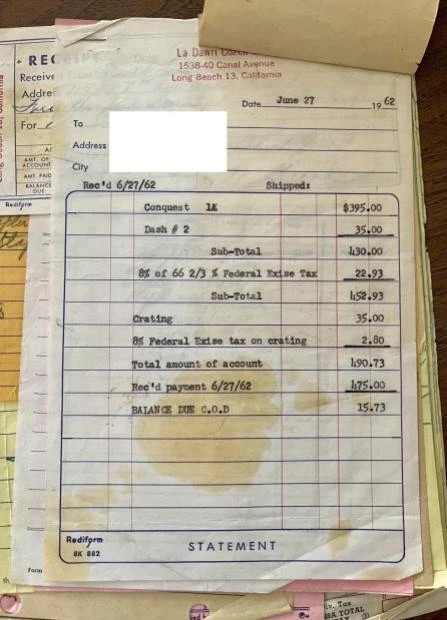 La Dawri
1538-40 Canal Avenue
Long Beach 13, California
RECEIPT
Receive
Addre
For
Date June 27 19 62
To
Address
City
AMT. OF
ACCOUNT
AMT. PAID
BALANCE
DUE
Rediform
Rec'd 6/27/62 Shipped:
Conquest 1A $395.00
Dash # 2 35.00
Sub-Total 430.00
8% of 66 2/3 % Federal Exise Tax 22.93
Sub-Total 452.93
Crating 35.00
8% Federal Exise tax on crating 2.80
Total amount of account 490.73
Rec'd payment 6/27/62 475.00
BALANCE DUE C.O.D 15.73
Rediform
8K 882
STATEMENT
Form
Tax
TOTAL